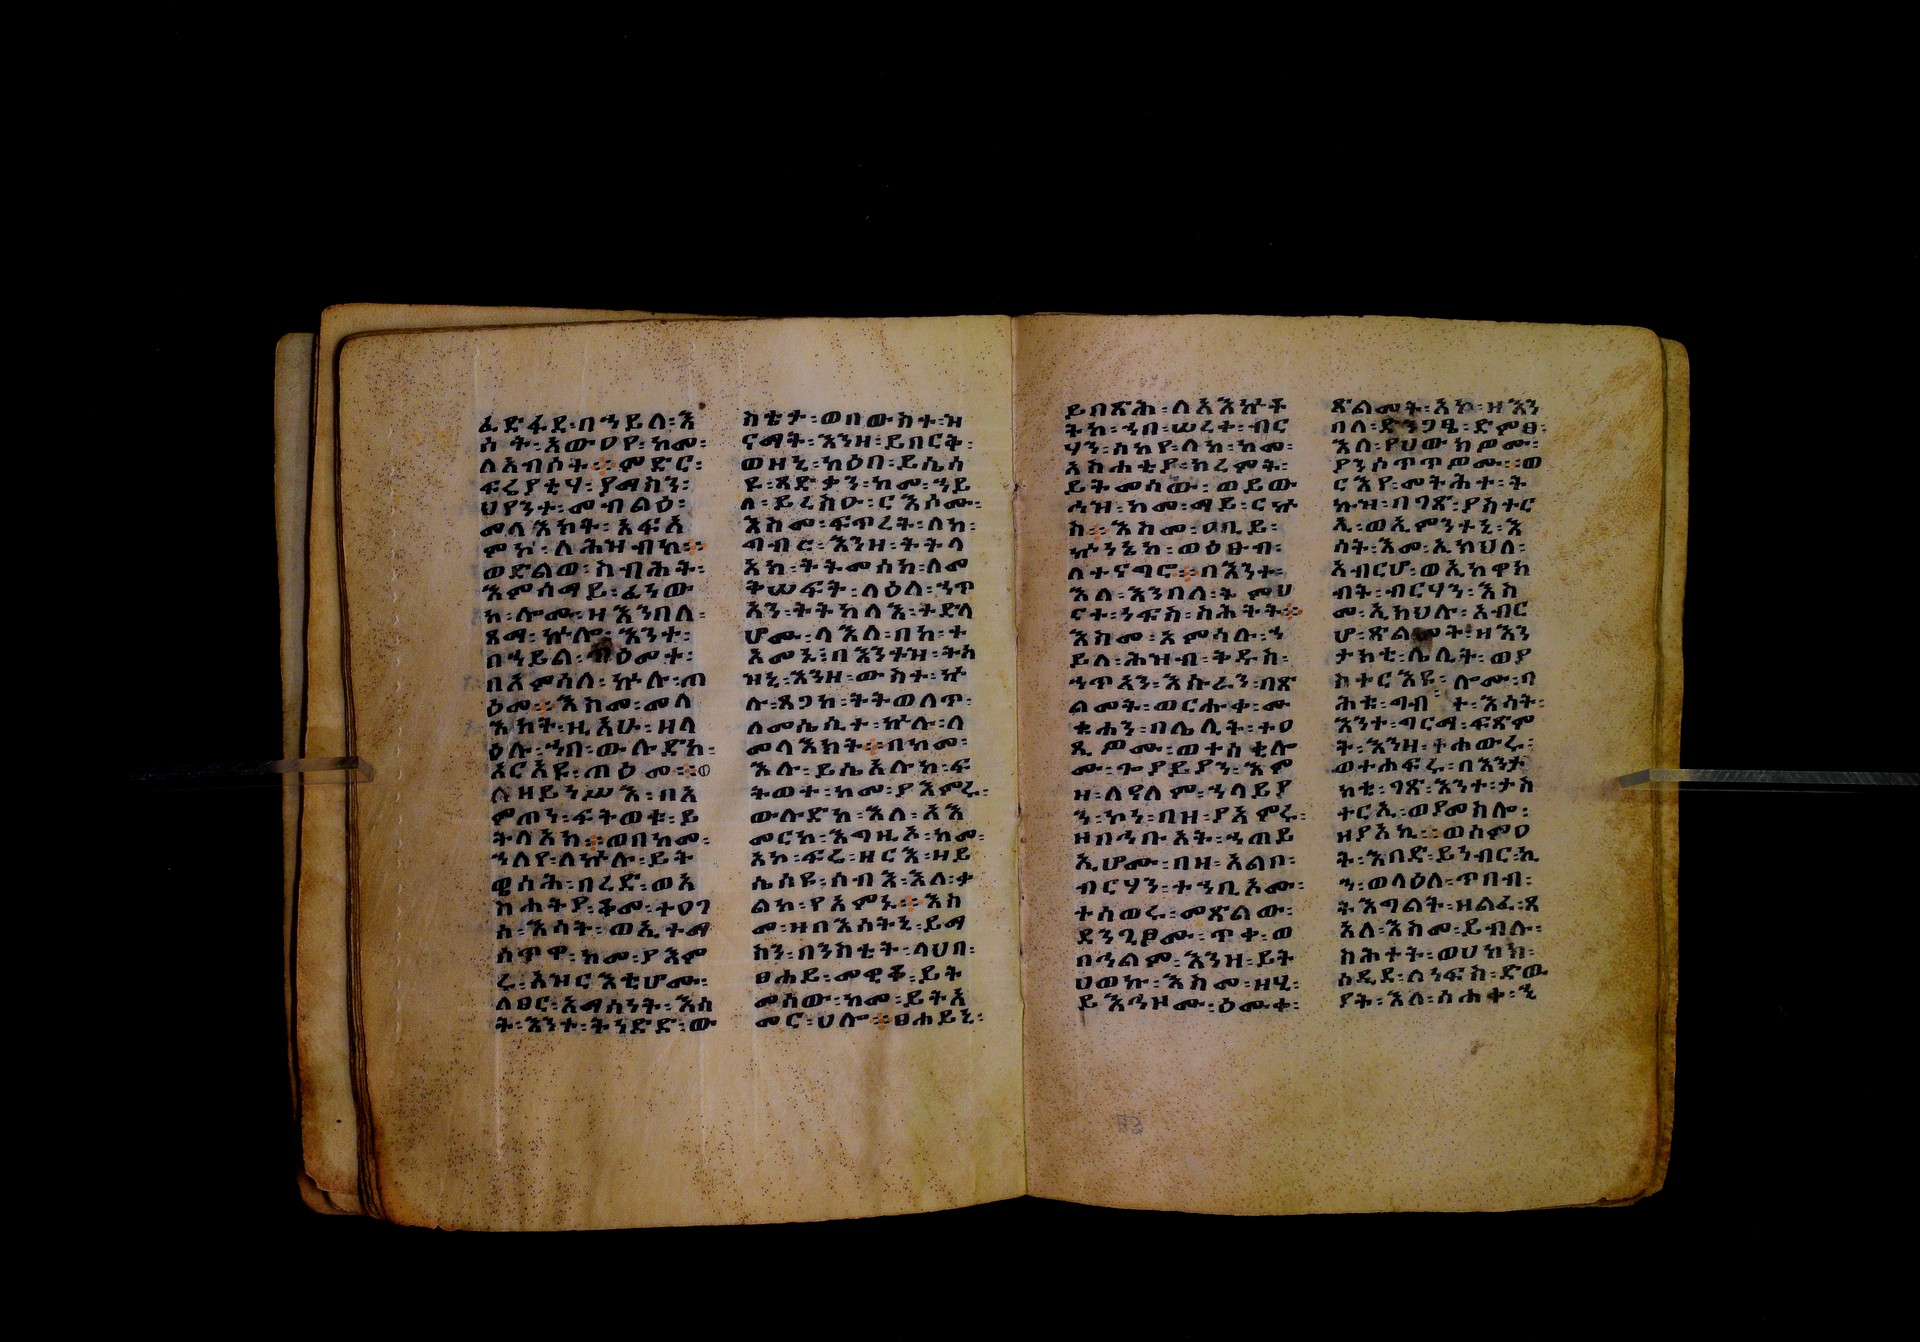 ፈድፋደ፡በኀይለ፡እ
ሳት፡አውዐየ፡ከመ፡
ለአብሶት፡ምድር፡
ፍሬያቲሃ፡ያማስን፡
ህየንተ፡መብልዕ፡
መላእክት፡አፍአ
ምከ፡ለሕዝብከ፡
ወድልወ፡ኅብስት፡
እምሰማይ፡ፈነው
ከ፡ሎሙ፡ዘእንበለ፡
ጻማ፡ኵሎ፡እንተ፡
በኀይል፡ጣዕመተ፡
በአምሳለ፡ኵሉ፡ጠ
ዕመ፡እስመ፡መላ
እክት፡ዚአሁ፡ዘላ
ዕሉ፡ኀበ፡ውሉድከ፡
አርአዩ፡ጠዕመ፡ወ
ለዘይነሥእ፡በአ
ምጠነ፡ፍትወቱ፡ይ
ትለአክ፡ወበከመ፡
ኀለየ፡ለኵሉ፡ይት
ዌሳሕ፡በረድ፡ወአ
ስሐትያ፡ቆመ፡ተዐገ
ሰ፡እሳት፡ወኢተማ
ሰጥዋ፡ከመ፡ያእም
ሩ፡እዝርእቲሆሙ፡
ለፀር፡አማሰነት፡እሳ
ት፡እንተ፡ትነድድ፡ው
ስቴታ፡ወበውስተ፡ዝ
ናማት፡እንዘ፡ይበርቅ፡
ወዘኒ፡ካዕበ፡ይሴሰ
ዩ፡ጻድቃን፡ከመ፡ኀይ
ለ፡ይረስዑ፡ርእሶሙ፡
እስመ፡ፍጥረት፡ለከ፡
ገብሮ፡እንዘ፡ትትላ
አክ፡ትትመሰክ፡ለመ
ቅሠፍት፡ላዕለ፡ኀጥ
አን፡ትትከላእ፡ትድላ
ሆሙ፡ላእለ፡በከ፡ተ
አመኑ፡በእንተዝ፡ትእ
ዝኒ፡እንዘ፡ውስተ፡ኵ
ሉ፡ጸጋከ፡ትትወለጥ፡
ለመሴሲተ፡ኵሉ፡ለ
መላእክት፡በከመ፡
እሉ፡ይሴአሉከ፡ፍ
ትወተ፡ከመ፡ያእምሩ፡
ውሉድከ፡እለ፡አእ
መርከ፡እግዚኦ፡ከመ፡
አኮ፡ፍሬ፡ዘርእ፡ዘይ
ሴስዩ፡ሰብእ፡አላ፡ቃ
ልከ፡የአምኑ፡እስ
መ፡ዘበእሳትኒ፡ይማ
ስን፡በንስቲት፡ላህበ፡
ፀሐይ፡መዊቆ፡ይት
መሰው፡ከመ፡ይትአ
መር፡ሀሎ፡ፀሐይኒ፡
ይበጽሕ፡ለአእኵቶ
ትከ፡ኀበ፡ሠረቀ፡ብር
ሃን፡ሰከየ፡ለከ፡ከመ፡
አስሐቲያ፡ክረምት፡
ይትመሰው፡ወይው
ሕዝ፡ከመ፡ማይ፡ርኩ
ስ፡እስመ፡ዐቢይ፡
ኵነኔከ፡ወዕፁብ፡
ለተናግሮ፡በእንተ፡
እለ፡እንበለ፡ትምህ
ርተ፡ነፍስ፡ስሕትት፡
እስመ፡አምሳሉ፡ኀ
ይለ፡ሕዝብ፡ቅዱስ፡
ኀጥአን፡እሱራን፡በጽ
ልመት፡ወርሑቀ፡ሙ
ቁሐን፡በሌሊት፡ተዐ
ጺዎሙ፡ወተሰቂሎ
ሙ፡ጐያይያን፡እም
ዘ፡ለዓለም፡ኀላይያ
ን፡ኮኑ፡በዘ፡ያአምሩ፡
ዘበኀቡአት፡ኀጠይ
ኢሆሙ፡በዘ፡አልቦ፡
ብርሃን፡ተኀቢአሙ፡
ተሰወሩ፡መጽልው፡
ደንጊፆሙ፡ጥቀ፡ወ
በኀልም፡እንዘ፡ይት
ሀወኩ፡እስመ፡ዘሂ፡
ይእኅዞሙ፡ዕሙቀ፡
ጽልመት፡አኮ፡ዘእን
በለ፡ድንጋፄ፡ድምፀ፡
እለ፡የሀውክዎሙ፡
ያንሰጥጥዎሙ፡ወ
ርእየ፡መትሕተ፡ት
ኩዝ፡በገጽ፡ያስተር
ኢ፡ወኢምንተኒ፡እ
ሳት፡እመ፡ኢክህለ፡
አብርሆ፡ወኢከዋክ
ብት፡ብርሃን፡እስ
መ፡ኢክህሉ፡አብር
ሆ፡ጽልመት፡ዘእን
ታክቲ፡ሌሊት፡ወያ
ስተርእዩ፡ሎሙ፡ባ
ሕቱ፡ግብተ፡እሳት፡
እንተ፡ግርማ፡ፍጽም
ት፡እንዘ፡ተሐውሩ፡
ወተሐፍሩ፡በእንታ
ክቲ፡ገጽ፡እንተ፡ታስ
ተርኢ፡ወያመክሎ፡
ዘያአኪ፡ወስምዐ
ት፡እበድ፡ይነብር፡ኪ
ን፡ወላዕለ፡ጥበብ፡
ትእግልት፡ዘልፈ፡ጸ
አለ፡እስመ፡ይብሉ፡
ስሕተት፡ወሀከክ፡
ሰዲደ፡ለነፍስ፡ድው
ያት፡እለ፡ሰሐቀ፡ኒ